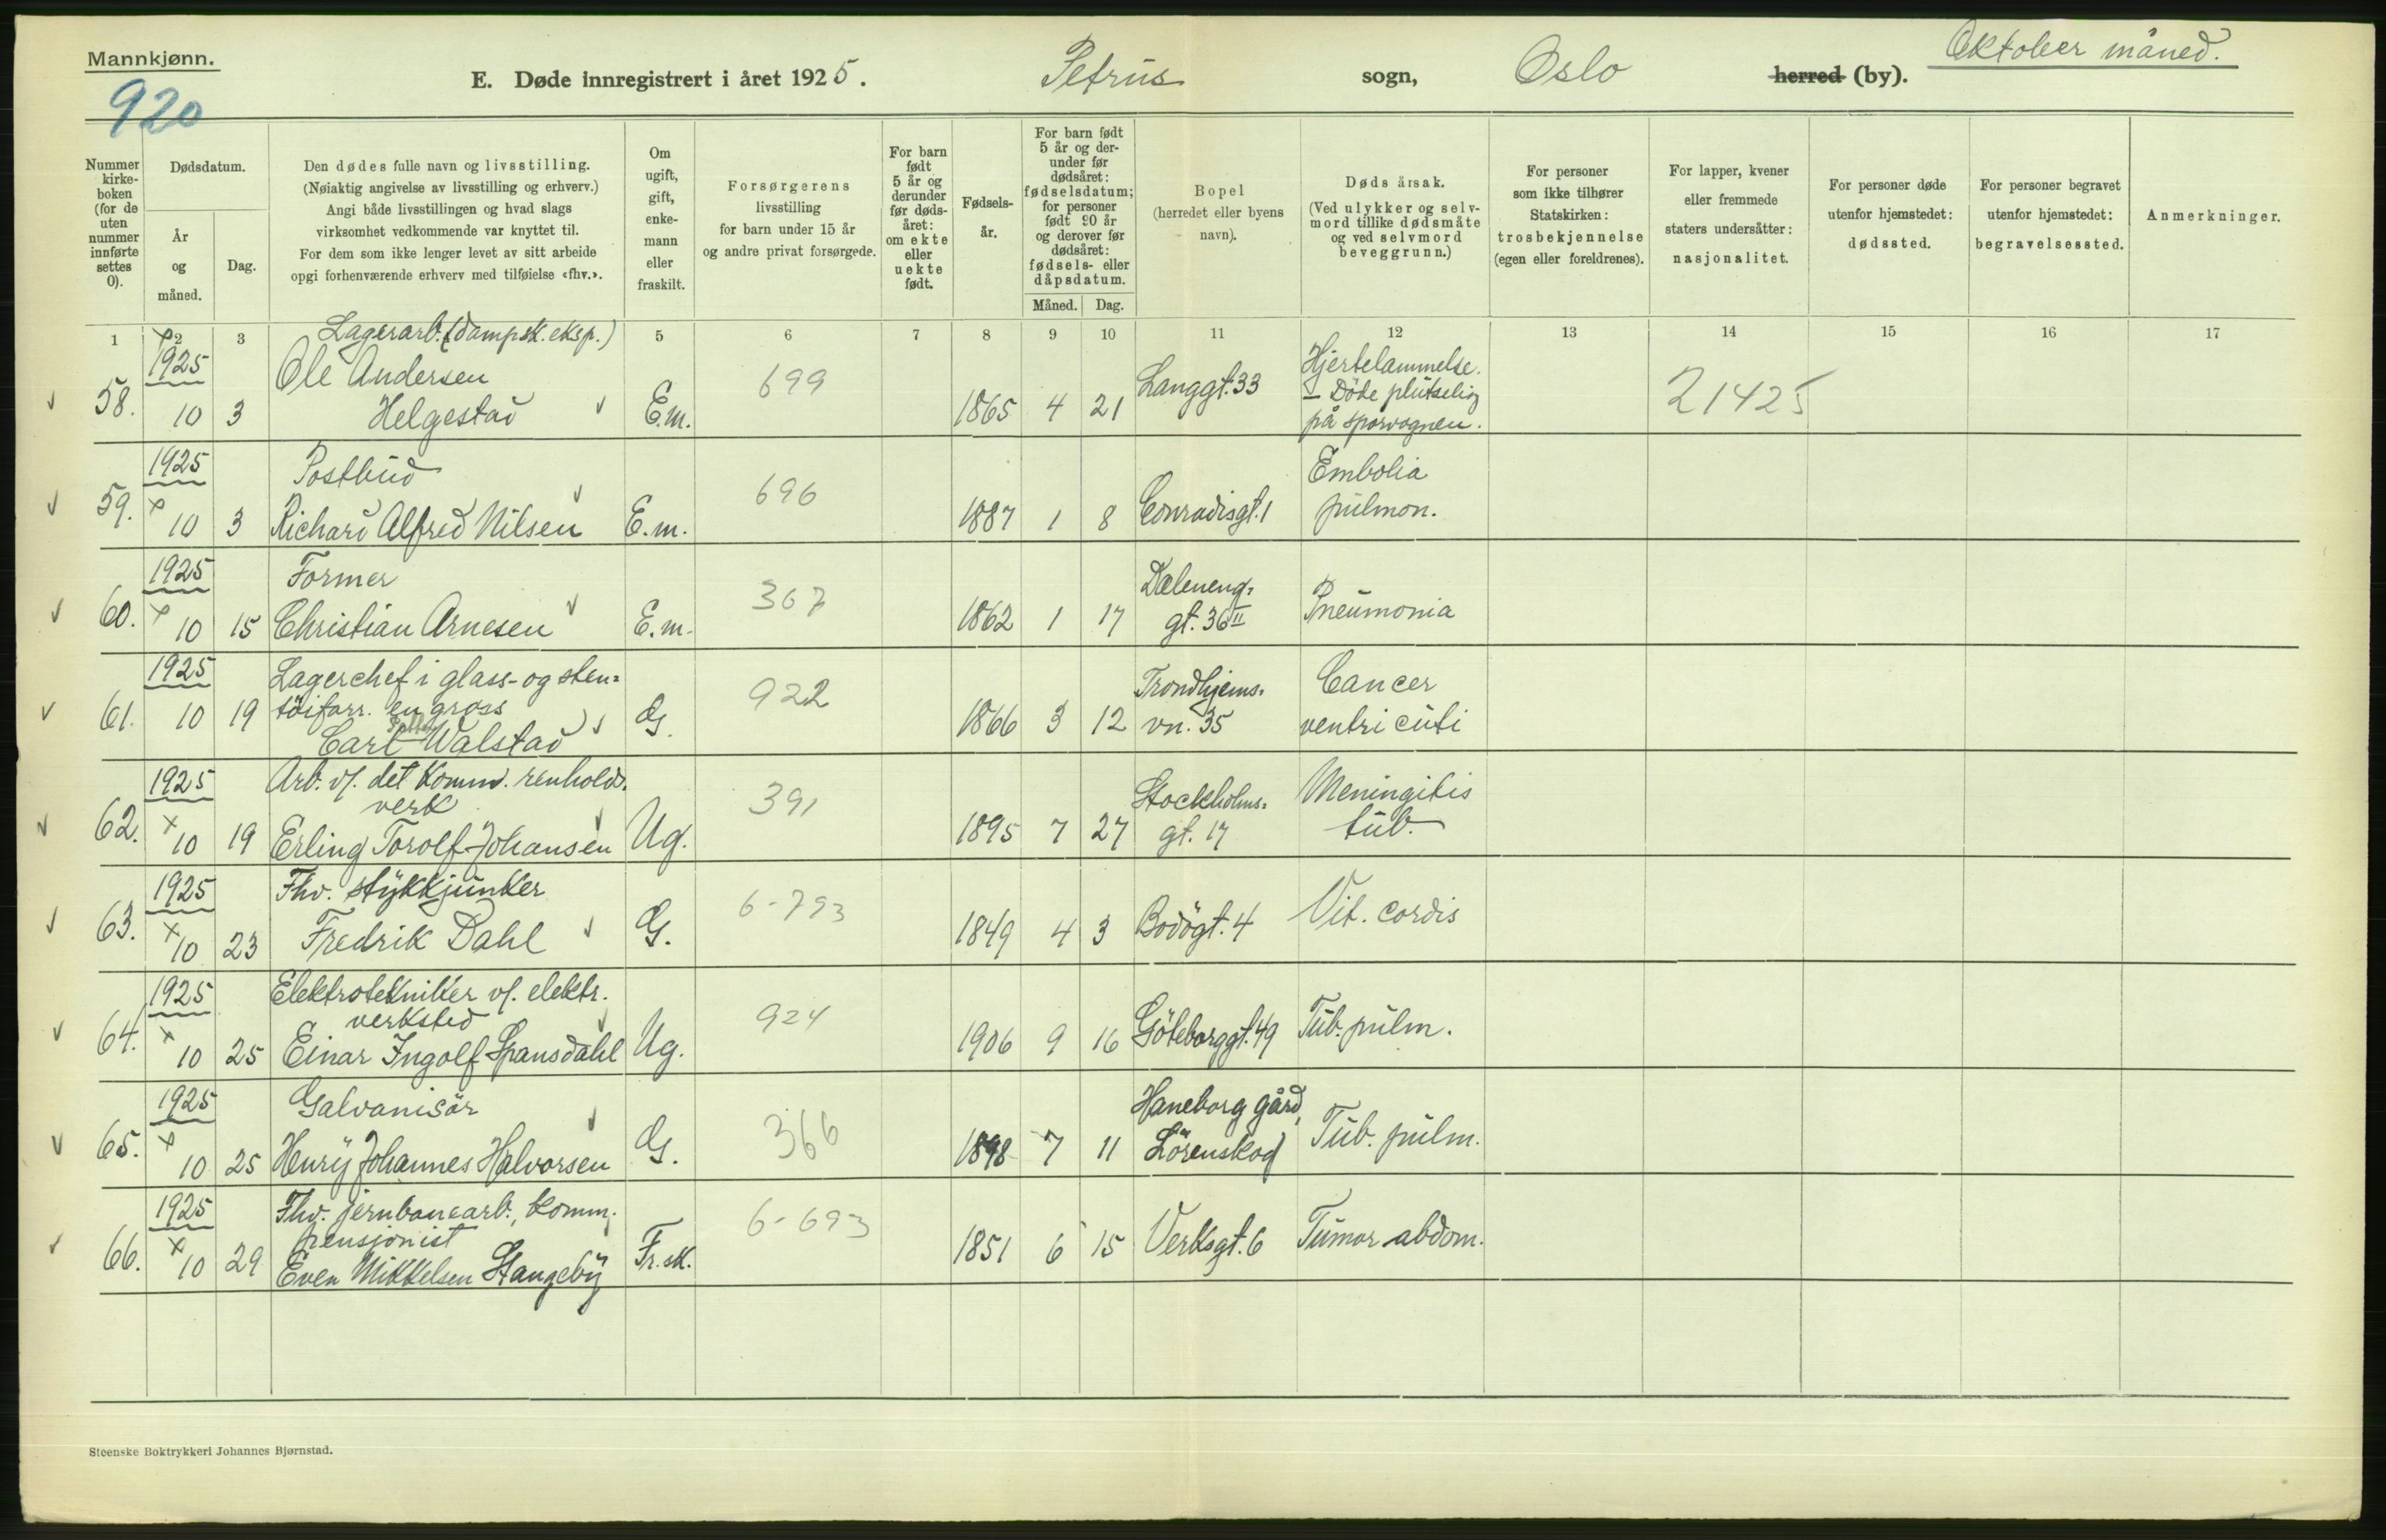 Mannkjønn.
920
E. Døde innregistrert i året 1925. Petrus sogn, Oslo herred (by). Oktober måned.
Nummer kirke-boken (for de uten nummer innførte settes 0).
Dødsdatum.
År og måned.
Dag.
Den dødes fulle navn og livsstilling.
(Nøiaktig angivelse av livsstilling og erhverv.)
Angi både livsstillingen og hvad slags
virksomhet vedkommende var knyttet til.
For dem som ikke lenger levet av sitt arbeide
opgi forhenværende erhverv med tilføielse «fhv.».
Om ugift, gift, enke-mann eller fraskilt.
Forsørgerens
livsstilling
for barn under 15 år
og andre privat forsørgede.
For barn født 5 år og derunder før døds-året: om ekte eller uekte født.
Fødsels-år.
For barn født 5 år og der-under før dødsåret: fødselsdatum; for personer født 90 år og derover før dødsåret: fødsels- eller dåpsdatum.
Måned. Dag.
Bopel
(herredet eller byens
navn).
Døds årsak.
(Ved ulykker og selv-
mord tillike dødsmåte
og ved selvmord
beveggrunn.)
For personer
som ikke tilhører
Statskirken:
trosbekjennelse
(egen eller foreldrenes).
For lapper, kvener
eller fremmede
staters undersåtter:
nasjonalitet.
For personer døde
utenfor hjemstedet:
dødssted.
For personer begravet
utenfor hjemstedet:
begravelsessted.
Anmerkninger.
1 2 3 5 6 7 8 9 10 11 12 13 14 15 16 17
Lagerarb. (dampsk. eksp.)
58. 1925 10 3 Ole Andersen Helgestad E.m. 699 1865 4 21 Langgt. 33 Hjertelammelse. – Döde plutselig på sporvognen. 21425
Postbud
59. 1925 10 3 Richard Alfred Nilsen E.m. 696 1887 1 8 Conradisgt. 1 Embolia pulmon.
Former
60. 1925 10 15 Christian Arnesen E.m. 367 1862 1 17 Daleneng-gt. 36 II Pneumonia
Lagerchef i glass- og sten-
töiforr. en gross
61. 1925 10 19 Carl Walstad G. 922 1866 3 12 Trondhjems-vn. 35 Cancer ventriculi
Arb. v/. det komm. renholds.
verk
62. 1925 10 19 Erling Torolf Johansen Ug. 391 1895 7 27 Stockholms-gt. 17 Meningitis tub.
Fhv. stykkjunker
63. 1925 10 23 Fredrik Dahl G. 6-793 1849 4 3 Bodögt. 4 Vit. cordis
Elektrotekniker v/. elektr.
verksted
64. 1925 10 25 Einar Ingolf Spansdahl Ug. 924 1906 9 16 Göteborggt. 49 Tub. pulm.
Galvanisör
65. 1925 10 25 Henry Johannes Halvorsen G. 366 1898 7 11 Haneborg gård, Lörenskog Tub. pulm.
Fhv. jernbanearb., komm.
pensjonist
66. 1925 10 29 Even Mikkelsen Stangeby Fr.sk. 6-693 1851 6 15 Verksgt. 6 Tumor abdom.
Steenske Boktrykkeri Johannes Bjørnstad.